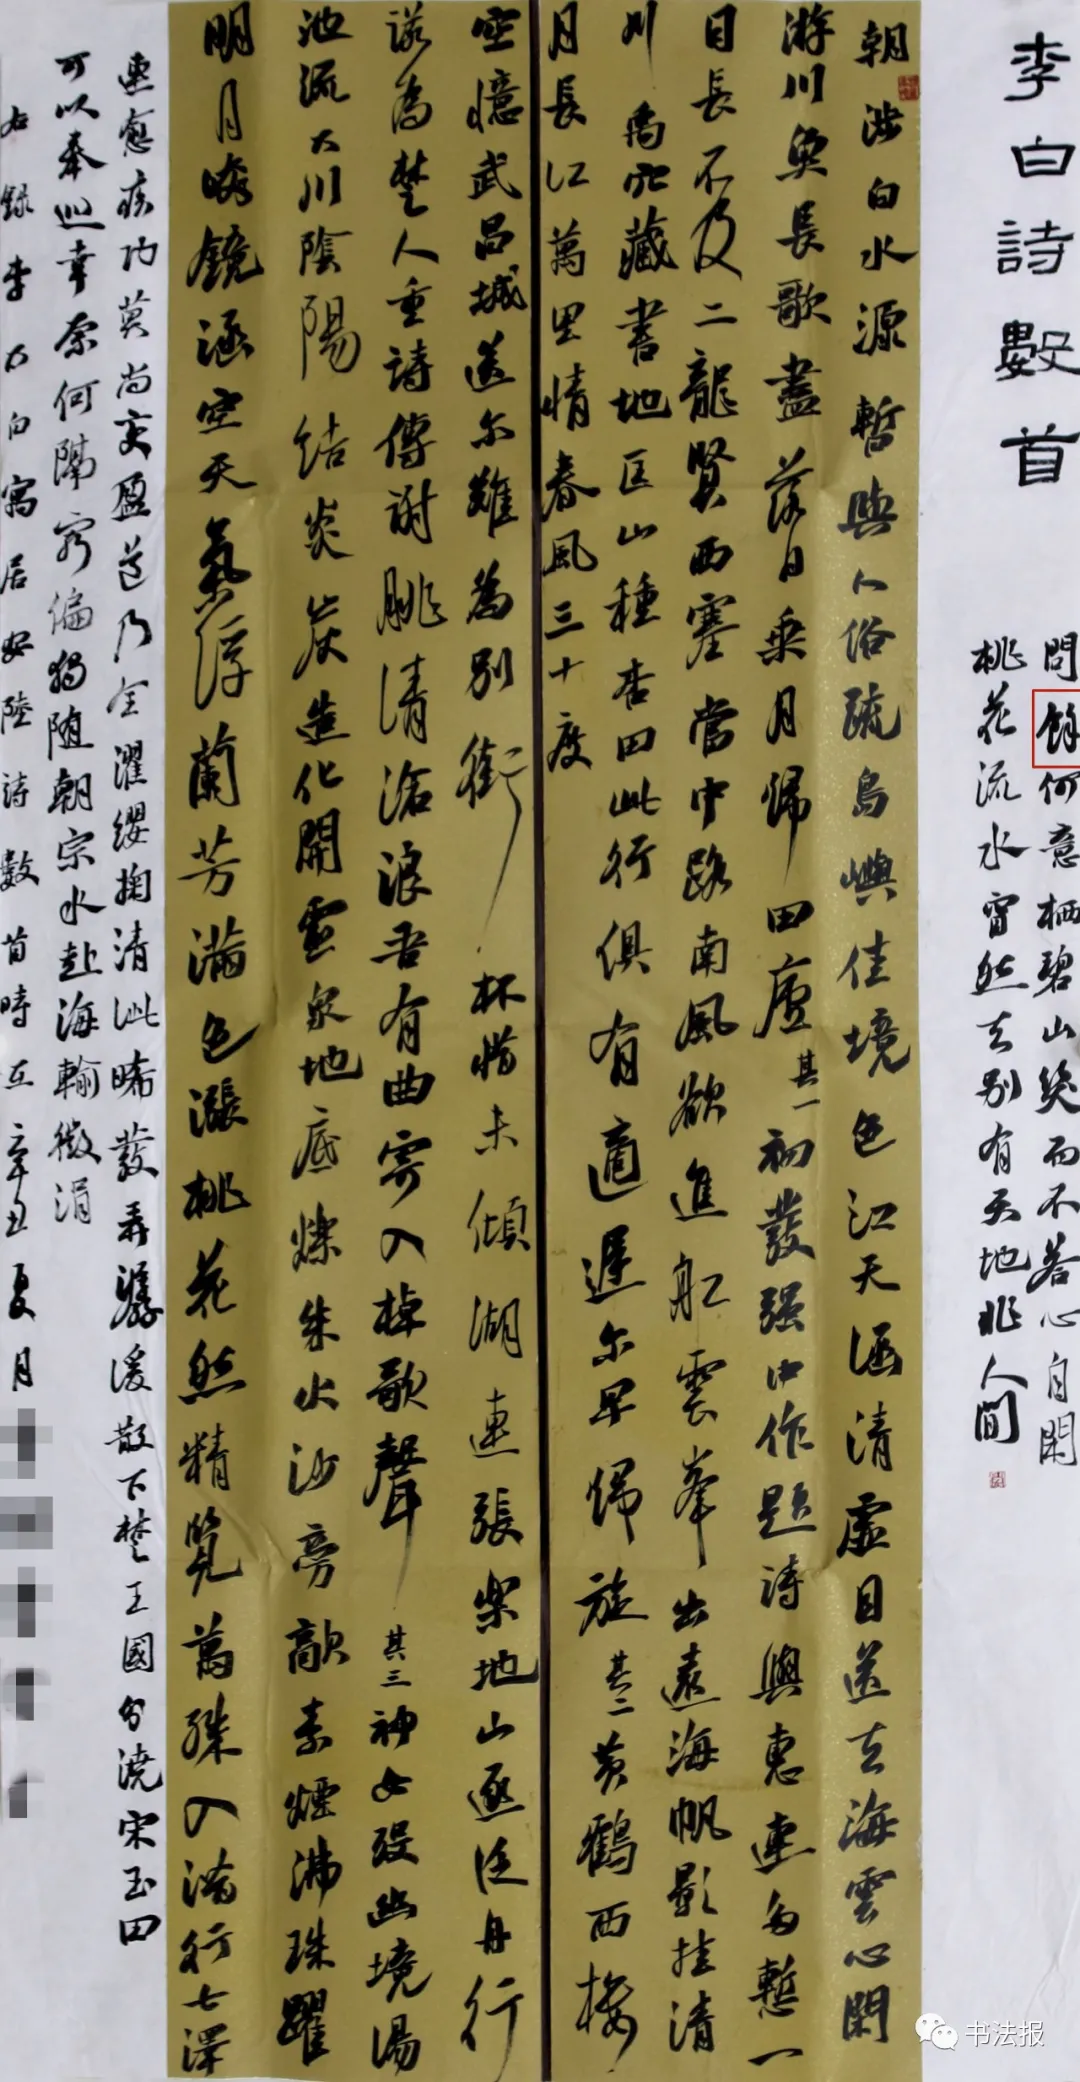 李白詩數首
問餘何意栖碧山笑而不荅心自閑
桃花流水窅然去別有天地非人間
朝涉白水源暫與人俗疏島嶼佳境色江天涵清虛目送去海雲心閑
游川魚長歌盡落日乘月歸田廬其一初發强中作題詩與惠連多慙一
日長不及二龍賢西塞當中路南風欲進舡雲峯出遠海帆影挂清
川禹穴藏書地匡山種杏田此行俱有適遲尔早歸旋其二黄鶴西樓
月長江萬里情春風三十度
空憶武昌城送尔難為別銜杯惜未傾湖連張樂地山逐泛舟行
諾為楚人重詩傳謝朓清滄浪吾有曲寄入棹歌聲其三神女歿幽境湯
池流大川陰陽結炎炭造化開靈泉地底爍朱火沙旁歊素煙沸珠躍
明月皎鏡涵空天氣浮蘭芳滿色漲桃花然精覽萬殊入潛行七澤
連愈疾功莫尚变盈道乃全濯纓掬清泚晞髮弄潺湲散下楚王國分澆宋玉田
可以奉巡幸奈何隔窮偏獨随朝宗水赴海輸微涓
右錄李太白寓居安陸詩數首時在辛丑夏月
书法报